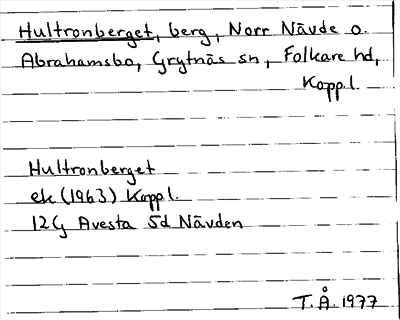 Hultronberget, berg, Norr Nävde o.
Abrahamsbo, Grytnäs sn, Folkare hd,
Kopp l.
Hultronberget
ek (1963) Kopp l.
12G Avesta 5d Nävden
T.Å. 1977